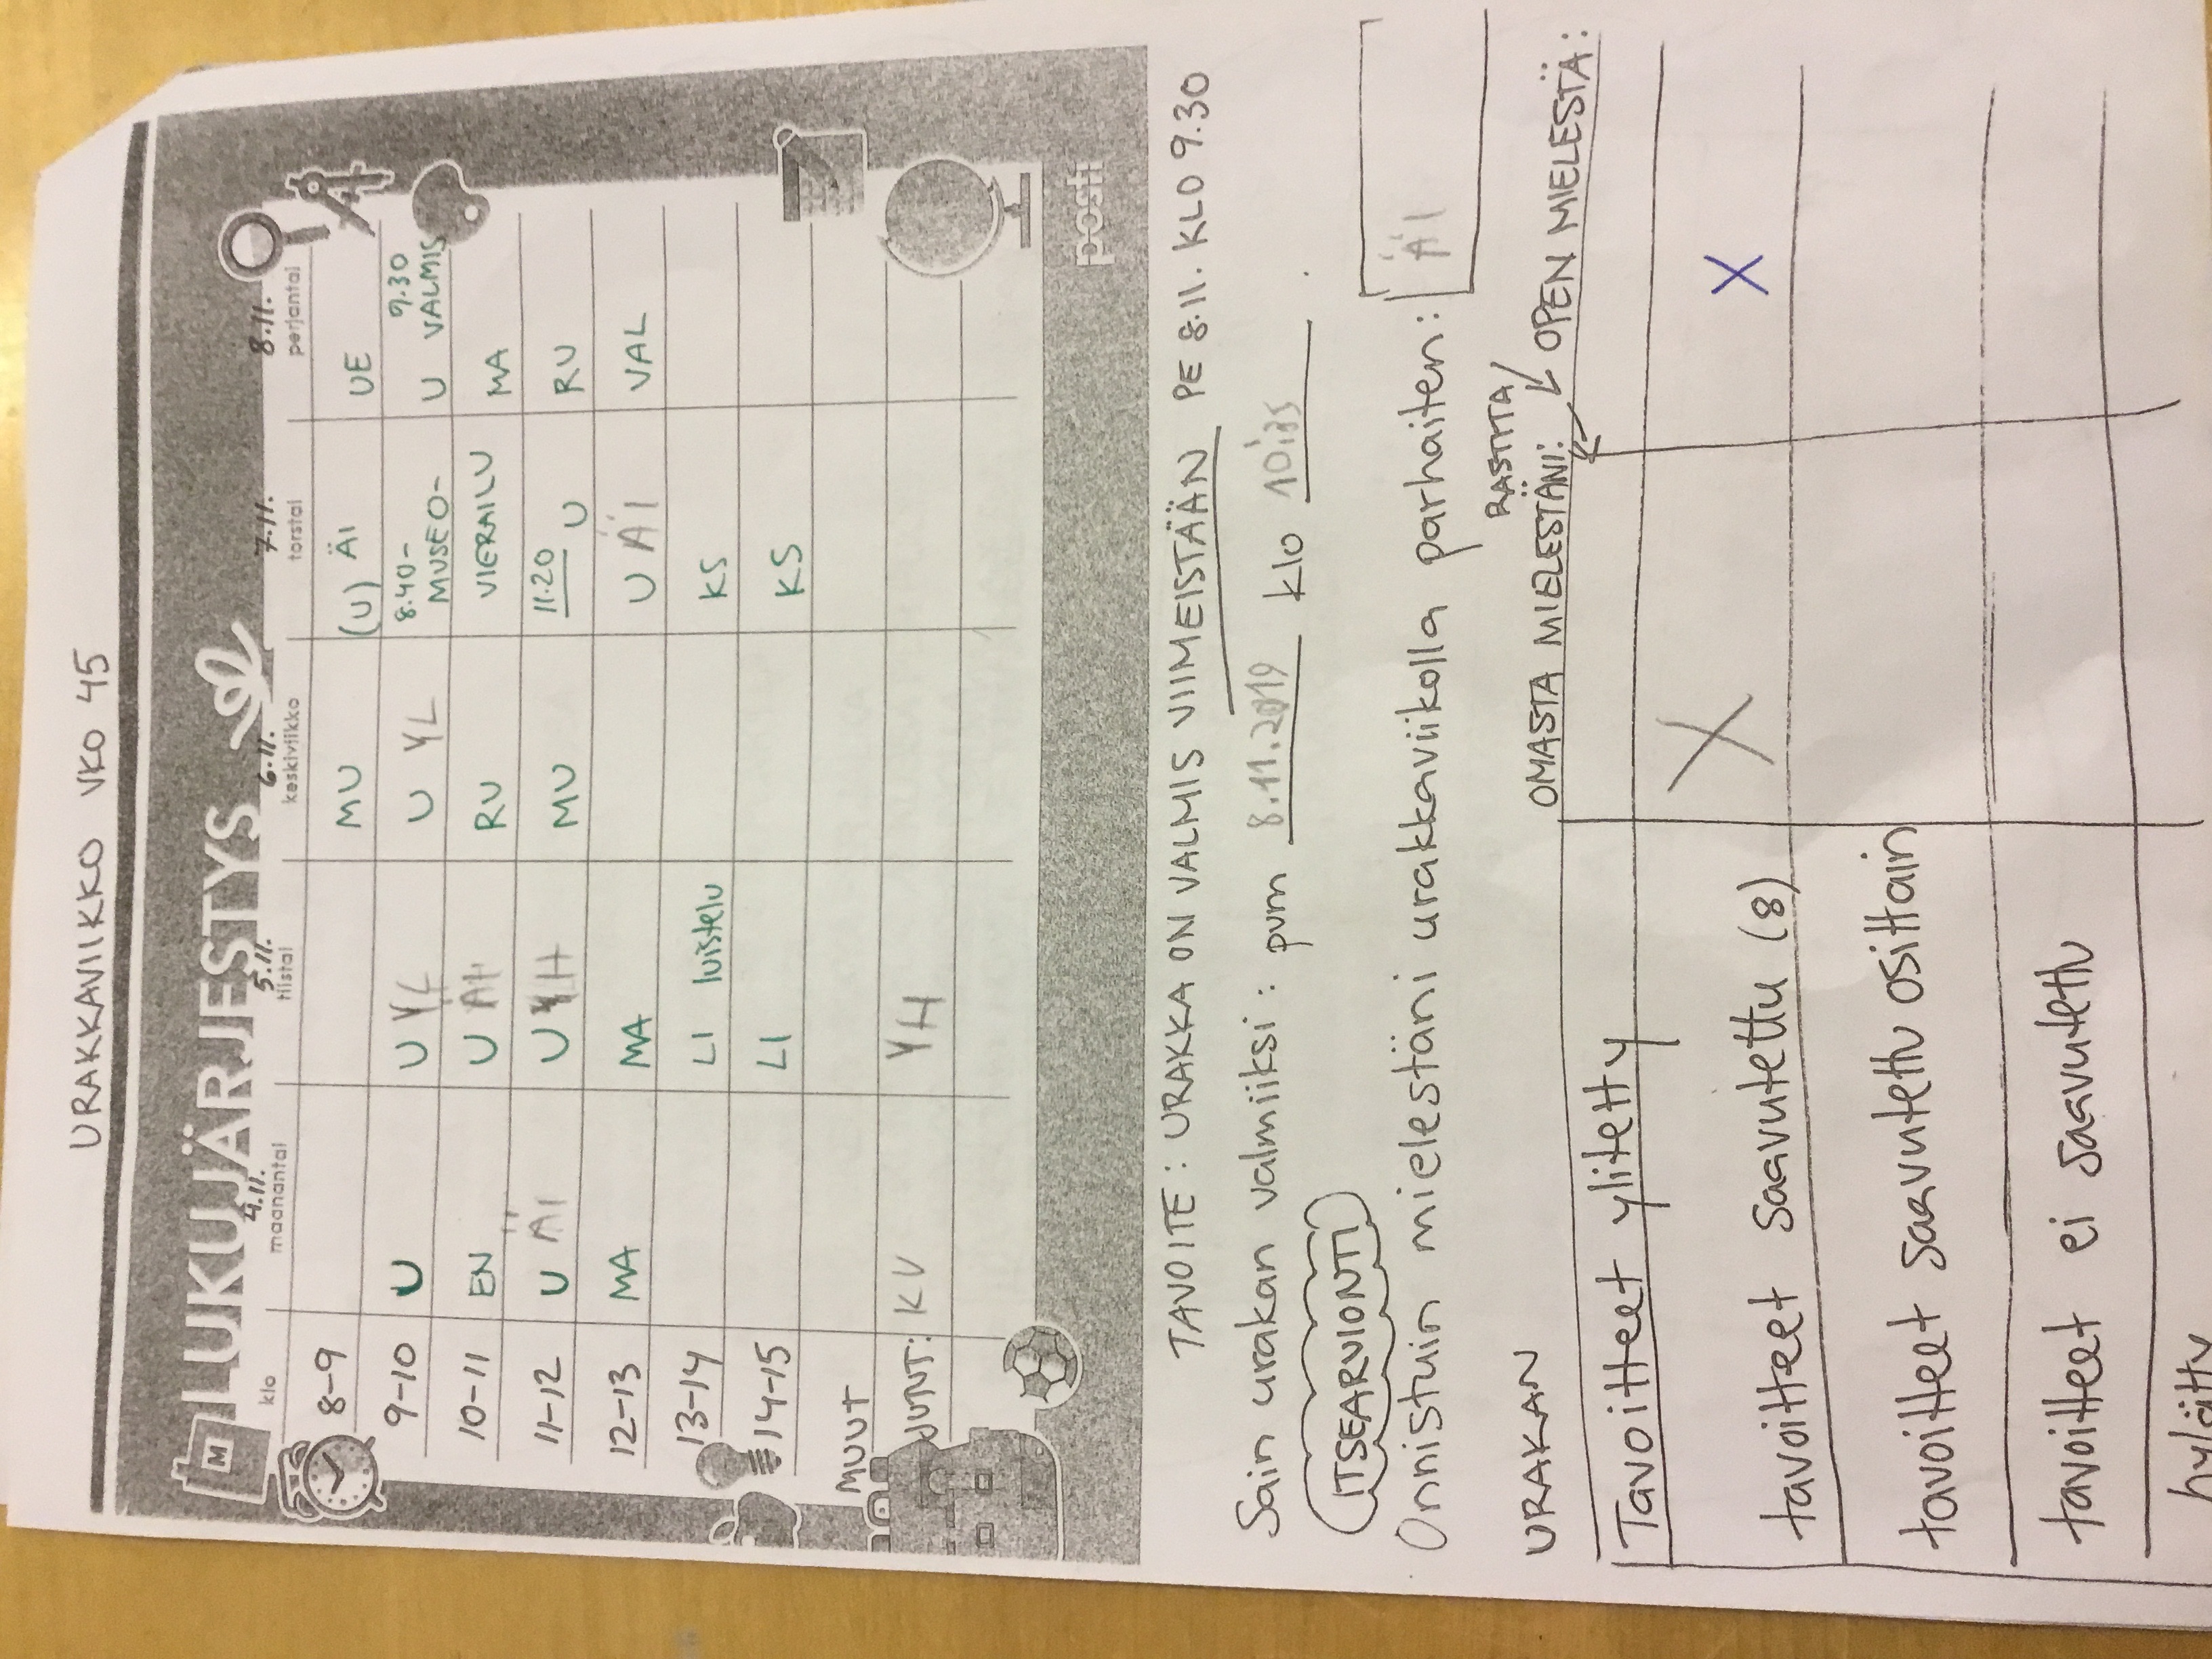 URAKKAVIIKKO VKO 45
M LUKUJÄRJESTYS
4.11. 5.11. 6.11. 7.11. 8.11.
klo maanantai tiistai keskiviikko torstai perjantai
8-9 MU (U) ÄI UE
9-10 U U YL U YL 8.40- MUSEO- U 9.30 VALMIS
10-11 EN U RU VIERAILU MA
11-12 U ÄI U YH MU 11.20 U RU
12-13 MA MA U ÄI VAL
13-14 LI luistelu KS
14-15 LI KS
MUUT
JUTUT: KU YH
posti
TAVOITE: URAKKA ON VALMIS VIIMEISTÄÄN PE 8.11. KLO 9.30
Sain urakan valmiiksi: pvm 8.11.2019 klo
ITSEARVIONTI
Onnistuin mielestäni urakkaviikolla parhaiten: ÄI
RASTITA
URAKAN OMASTA MIELESTÄNI: OPEN MIELESTÄ:
Tavoitteet ylitetty
tavoitteet saavutettu (8) X X
tavoitteet saavutettu osittain
tavoitteet ei saavutettu
hylätty